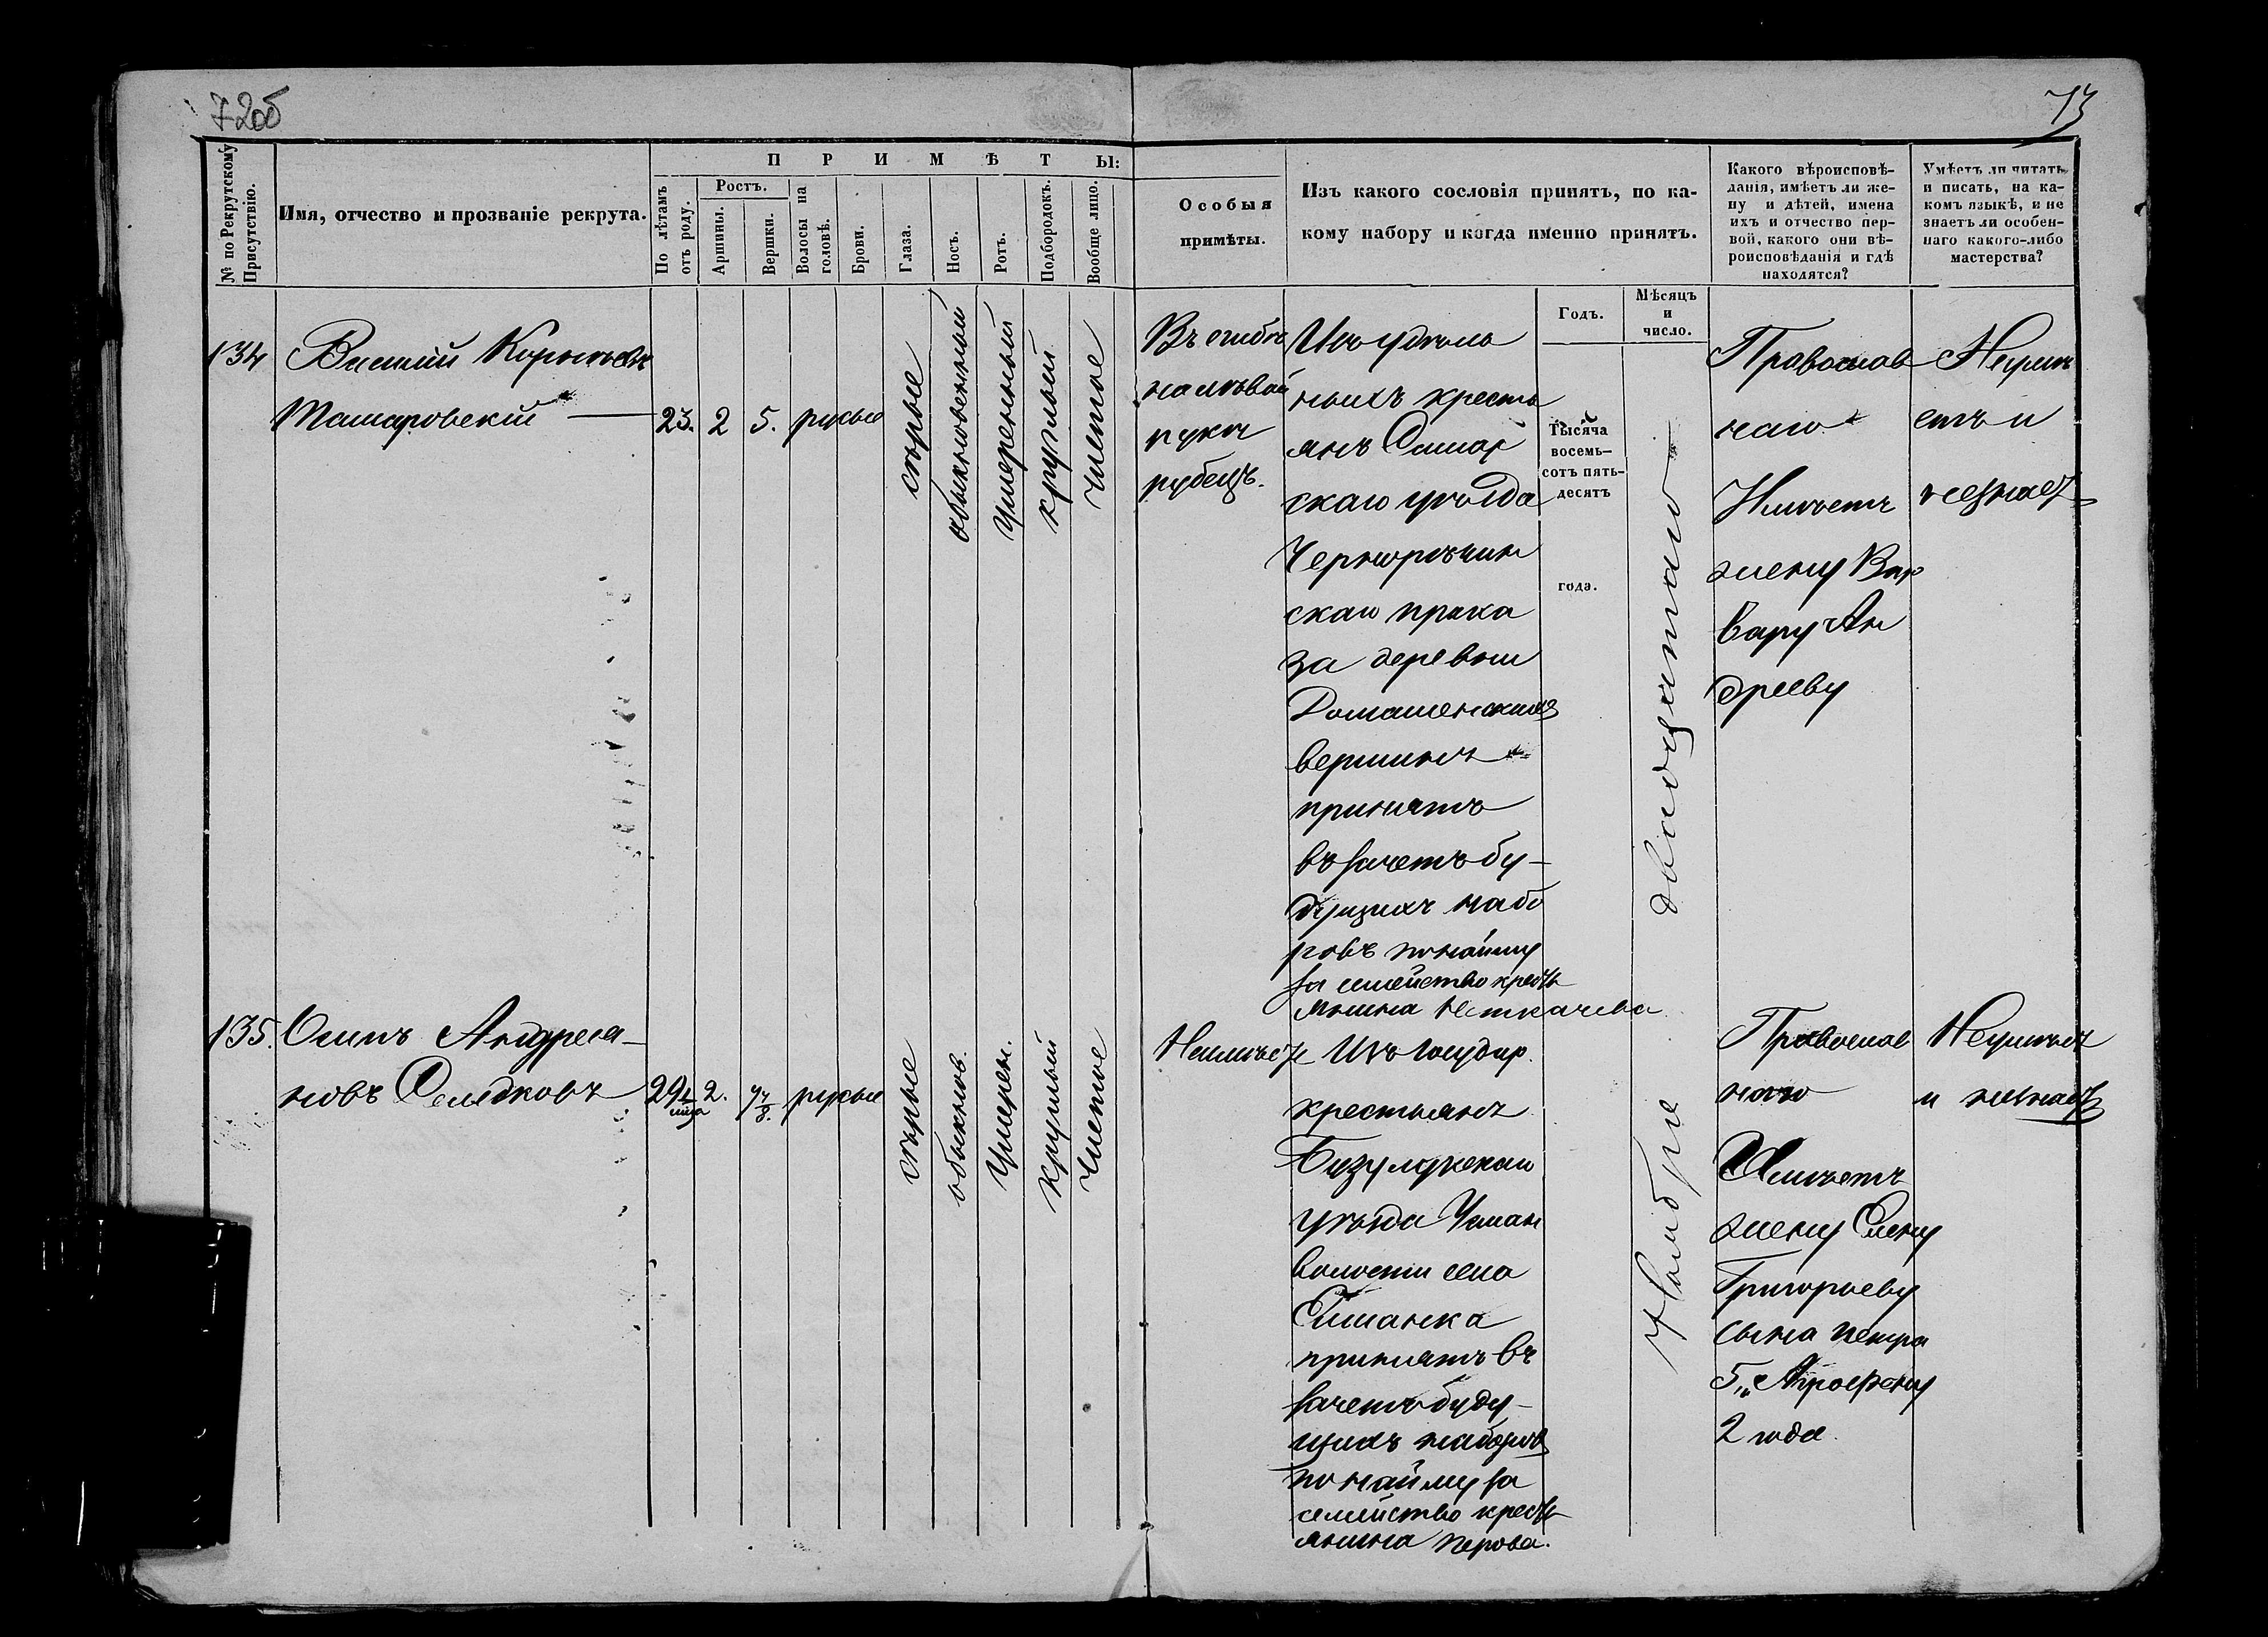 72об
73
№ по Рекрутскому Присутствію.
Имя, отчество и прозваніе рекрута.
ПРИМѢТЫ:
По лѣтамъ отъ роду.
Ростъ.
Аршины.
Вершки.
Волосы на головѣ.
Брови.
Глаза.
Носъ.
Ротъ.
Подбородокъ.
Вообще лицо.
Особыя
примѣты.
Изъ какого сословія принятъ, по ка-
кому набору и когда именно принятъ.
Годъ.
Мѣсяцъ
и
число.
Какого вѣроисповѣ-
данія, имѣетъ ли же-
ну и дѣтей, имена
ихъ и отчество пер-
вой, какого они вѣ-
роисповѣданія и гдѣ
находятся?
Умѣетъ ли читать
и писать, на ка-
комъ языкѣ, и не
знаетъ ли особен-
наго какого-либо
мастерства?
134
Василий
Ташаровскій
23.
2
5.
русые
сѣрые
обыкновенный
умеренный
круглый
чистое
Въ сгибѣ
на лѣвой
руки
рубецъ.
Изъ удѣль
ныхъ кресть
янъ Самар
скаго уѣзда
Чернорѣчин
скаго прика
за деревни
вершинъ
принятъ
въ зачетъ бу-
дущихъ набо
ровъ по найму
за семейство кресть
янина
Тысяча
восемь-
сотъ пять-
десятъ
года.
Ноября двадцатаго
Православ
наго
Имѣетъ
жену Вар
вару Ан
дрееву
Неумѣ
етъ и
незнаетъ
135.
Осипъ Андреея-
новъ Селедковъ
29
2.
русые
сѣрые
обыкнов.
Умерен.
круглый
чистое
Неимѣетъ
Изъ государ.
крестьянъ
Бузулукскаго
уѣзда
волости села
принятъ въ
зачетъ буду-
щихъ наборовъ
по найму за
семейство кресть
янина Перова.
Православ
наго
Имѣетъ
жену Елену
Григорьеву
сына Петра
5,, Агрофену
2 года.
Неумѣетъ
и незнаетъ